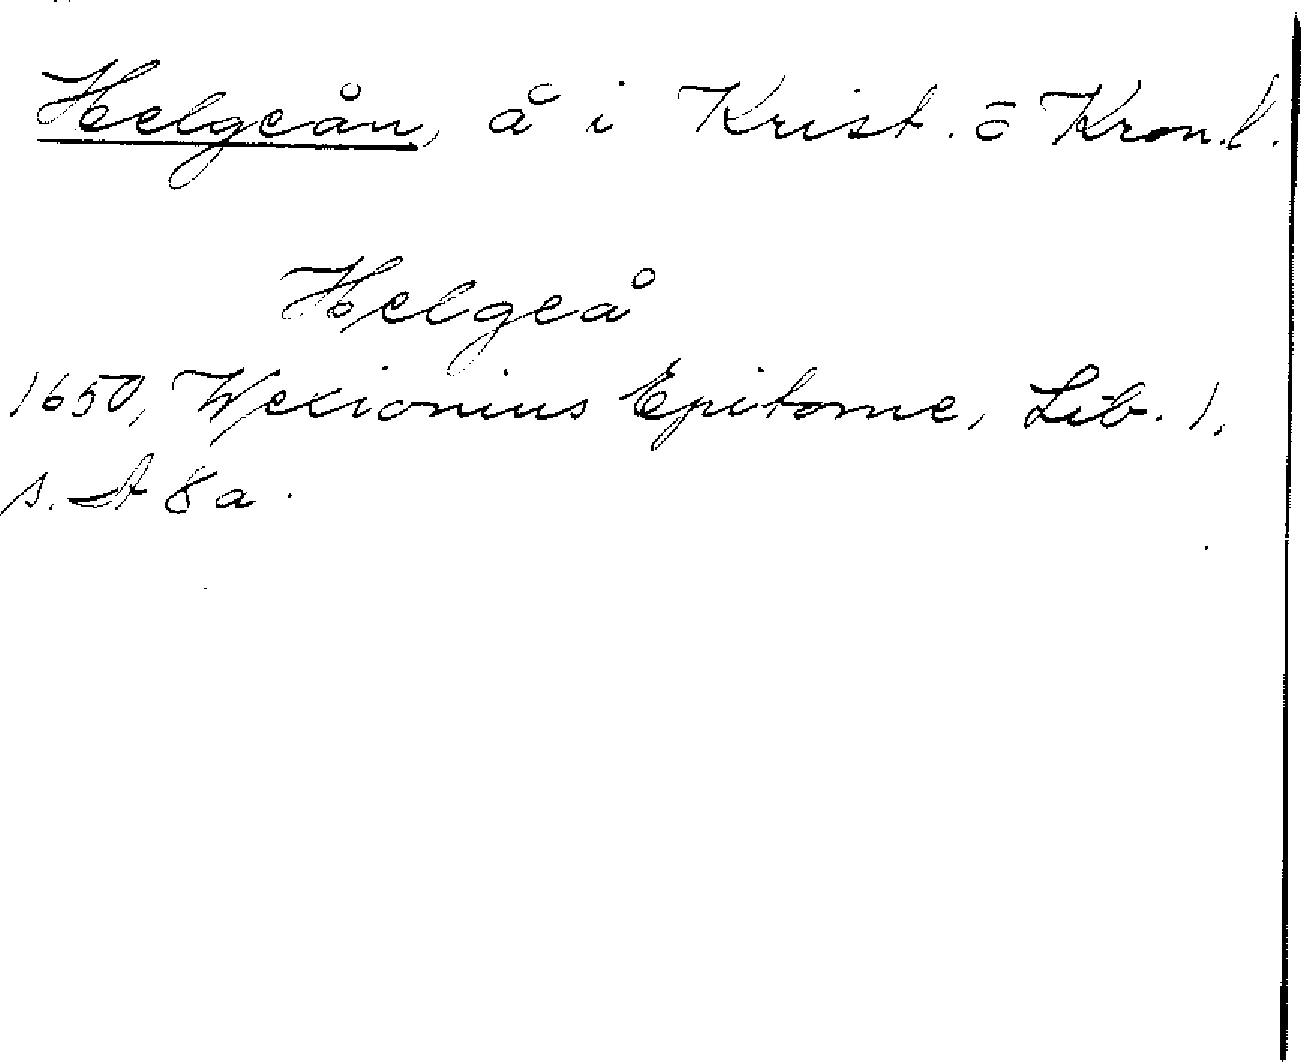 Helgeån, å i Krist. o̅ Kron.l.
Helgeå
1650, Wexionius Epitome, Lib. 1,
s. A 8 a.